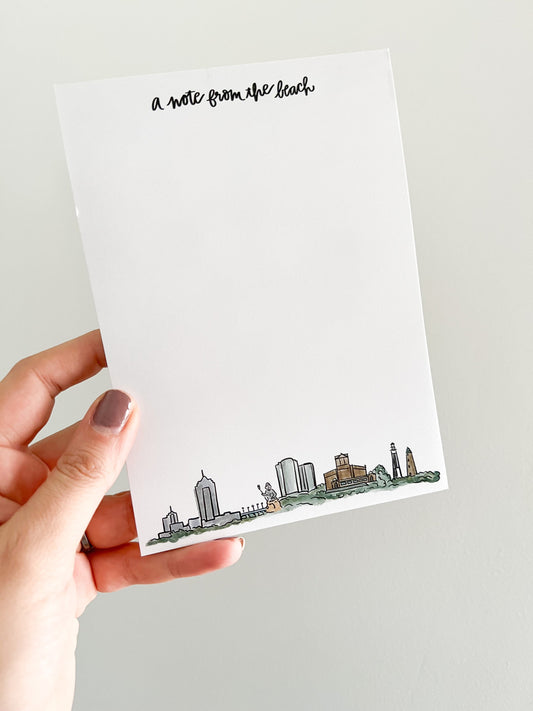 a note from the beach